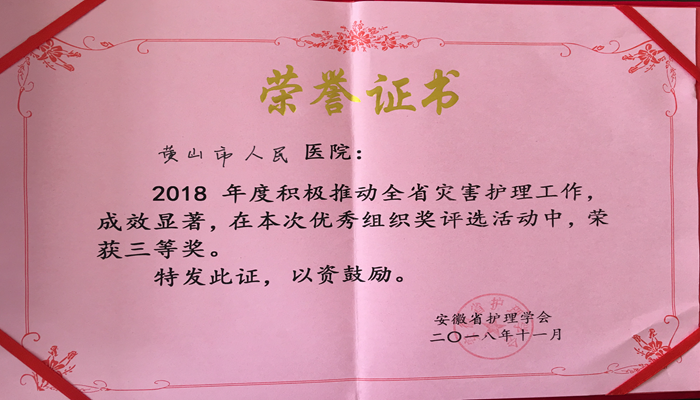 荣誉证书
黄山市人民 医院：
2018 年度积极推动全省灾害护理工作，
成效显著，在本次优秀组织奖评选活动中，荣
获三等奖。
特发此证，以资鼓励。
安徽省护理学会
二〇一八年十一月